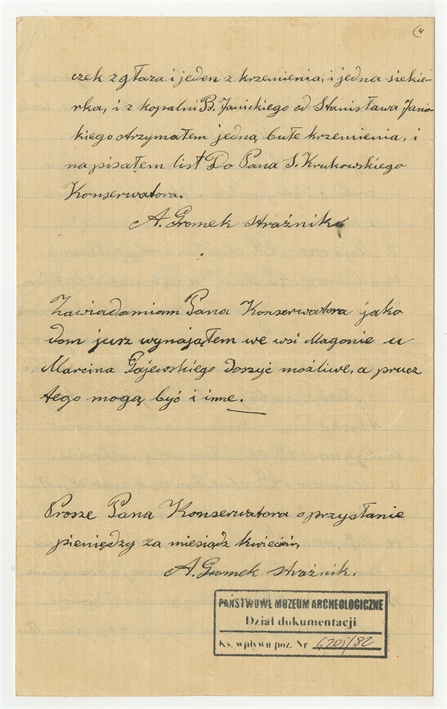 4
czek z głaza i jeden z krzemienia, i jedna siekier
rka, i z kopalni B. Janickiego od Stanisława Janic
kiego otrzymałem jedną bułę krzemienia, i
napisałem list Do Pana S. Krukowskiego
Konserwatora.
A. Gromek strażnik
Zawiadamiam Pana Konserwatora jako
dom jurz wynająłem we wsi Magonie u
Marcina Gajewskiego doszyć możliwe, aprucz
tego mogą być i inne.
Prosze Pana Konserwatora o przysłanie
pieniędzy za miesiądz kwiecień,
A. Gromek strażnik.
PAŃSTWOWE MUZEUM ARCHEOLOGICZNE
Dział dokumentacji
Ks. wpływu poz. Nr /82